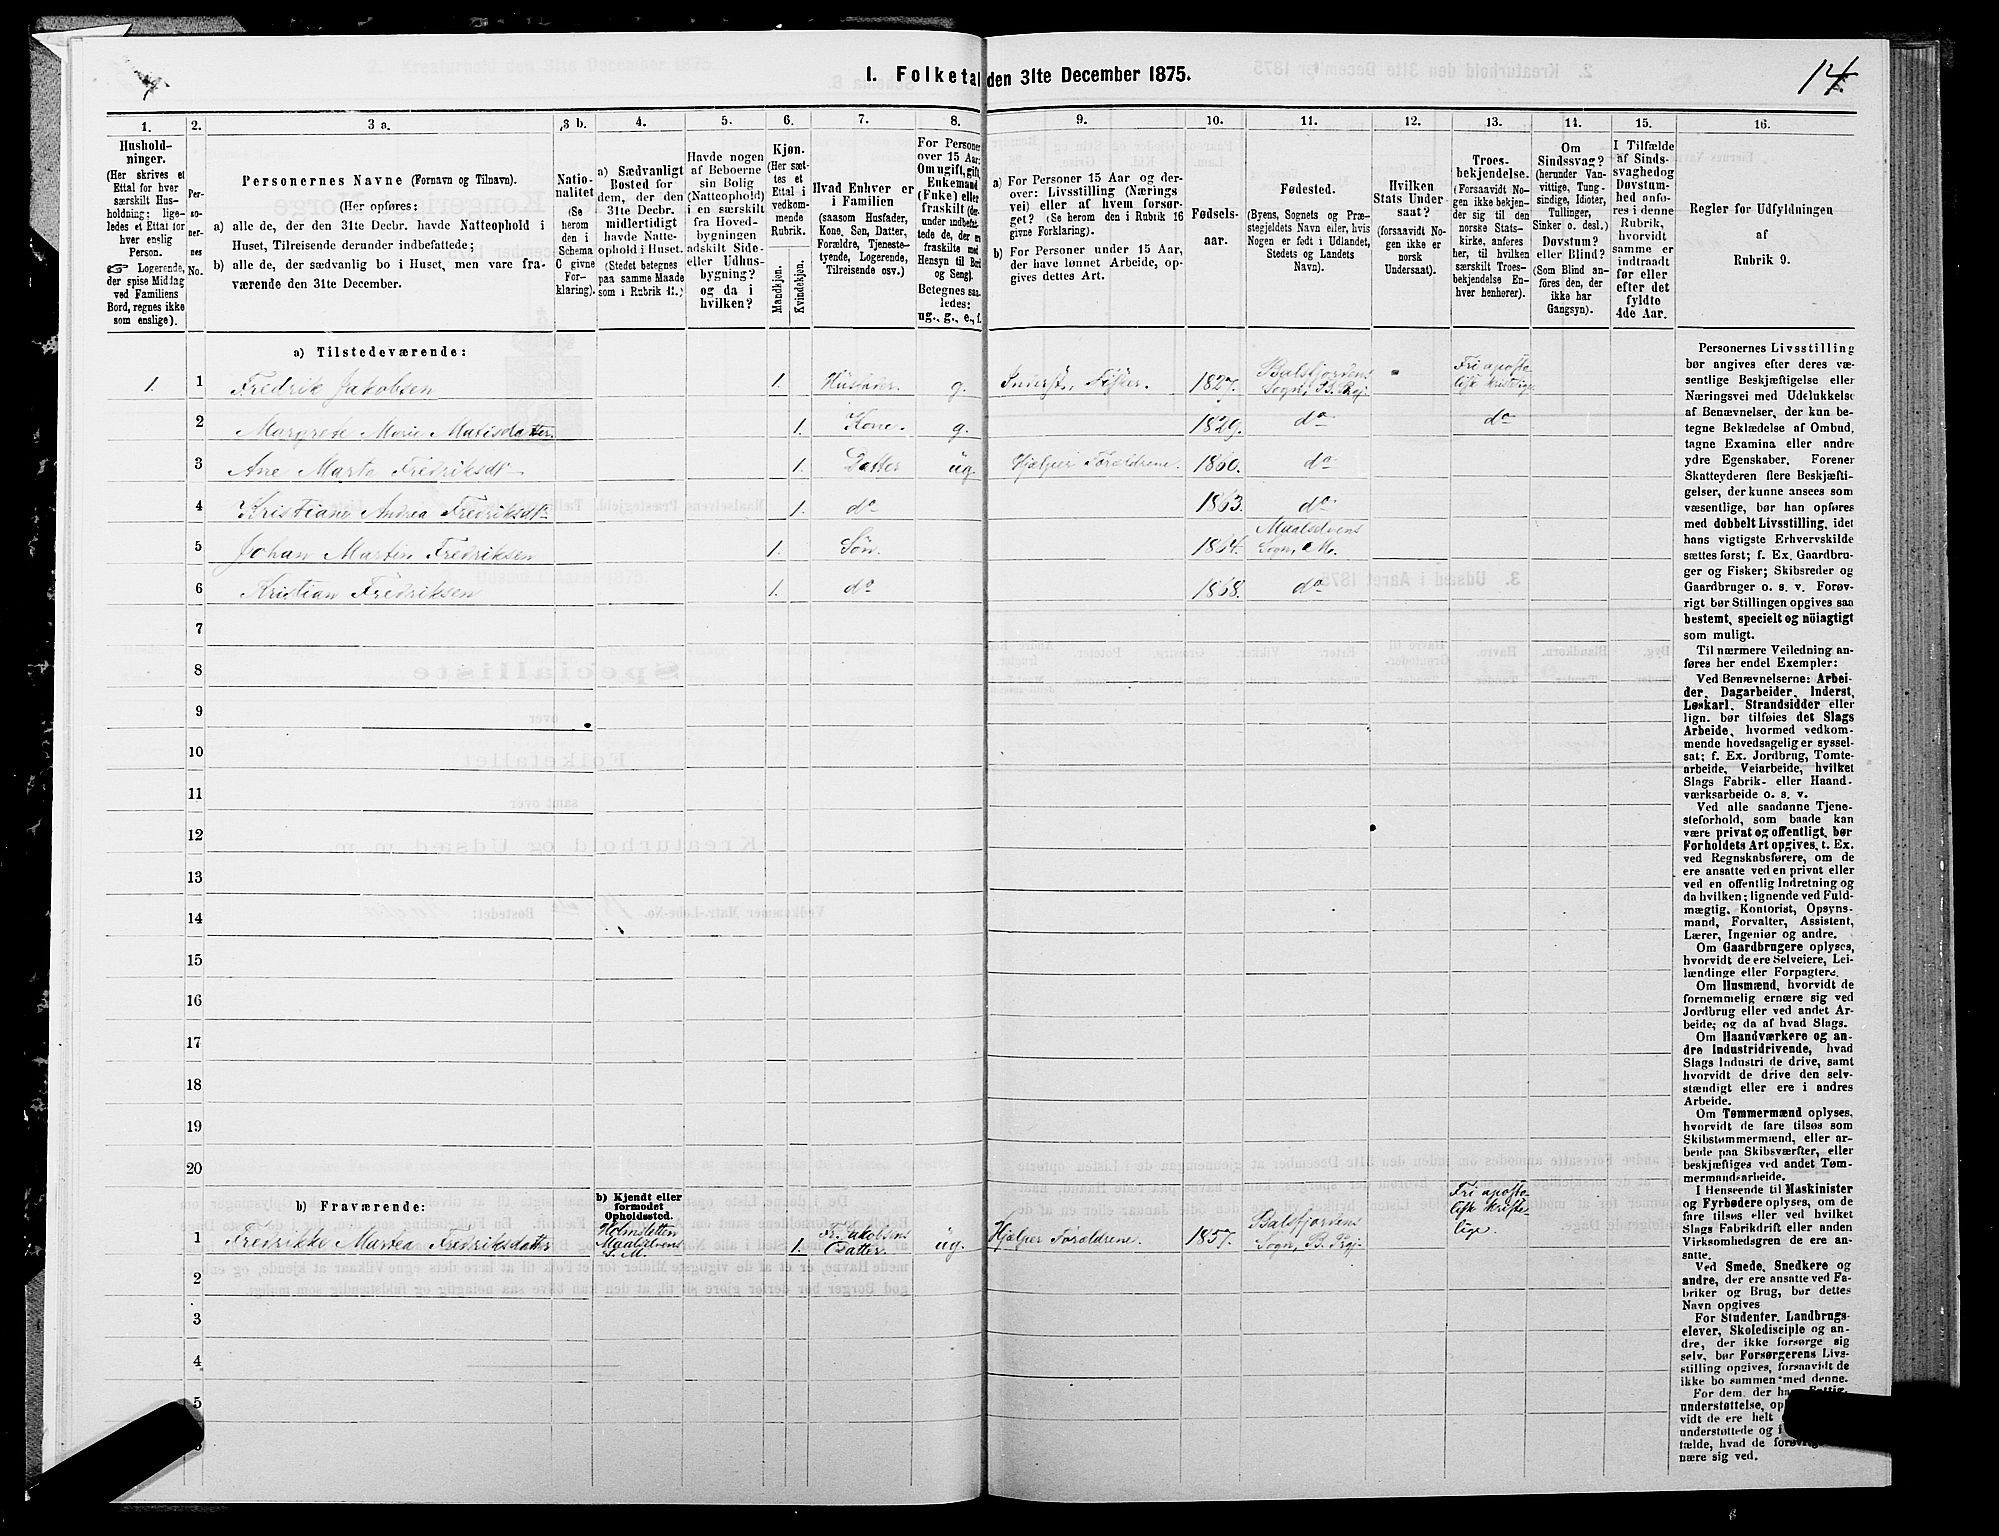 14
I. Folketal den 31te December 1875.
1.
2.
3 a.
3 b.
4.
5.
6.
7.
8.
9.
10.
11.
12.
13.
14.
15.
16.
Hushold-
ninger.
(Her skrives et
Ettal for hver
særskilt Hus-
holdning; lige-
ledes et Ettal for
hver enslig
Person.
☞ Logerende,
der spise Middag
ved Familiens
Bord, regnes ikke
som enslige).
Per-
so-
ner-
nes
No.
Personernes Navne (Fornavn og Tilnavn).
(Her opføres:
a) alle de, der den 31te Decbr. havde Natteophold i
Huset, Tilreisende derunder indbefattede;
b) alle de, der sædvanlig bo i Huset, men vare fra-
værende den 31te December.
Natio-
nalitet
(Se
herom
den i
Schema
C givne
For-
klaring).
a) Sædvanligt
Bosted for
dem, der den
31te Decbr.
midlertidigt
havde Natte-
ophold i Huset.
(Stedet betegnes
paa samme Maade
som i Rubrik 11.)
Havde nogen
af Beboerne
sin Bolig
(Natteophold)
i en særskilt
fra Hoved-
bygningen
adskilt Side-
eller Udhus-
bygning?
og da i
hvilken?
Kjøn.
(Her sæt-
tes et
Ettal i
vedkom-
mende
Rubrik.
Mandkjøn.
Kvindekjøn.
Hvad Enhver er
i Familien
(saasom Husfader,
Kone, Søn, Datter,
Forældre, Tjeneste-
tyende, Logerende,
Tilreisende osv.)
For Personer
over 15 Aar:
Om ugift, gift,
Enkemand
(Enke) eller
fraskilt (her-
under indbefat-
tede de, der ere
fraskilte med
Hensyn til Bord
og Seng).
Betegnes saa-
ledes:
ug., g., e., f.
a) For Personer 15 Aar og der-
over: Livsstilling (Nærings
vei) eller af hvem forsør-
get? (Se herom den i Rubrik 16
givne Forklaring).
b) For Personer under 15 Aar,
der have lønnet Arbeide, op-
gives dettes Art.
Fødsels-
aar.
Fødested.
(Byens, Sognets og Præ-
stegjeldets Navn eller, hvis
Nogen er født i Udlandet,
Stedets og Landets
Navn).
Hvilken
Stats Under
saat?
(forsaavidt No-
gen ikke er
norsk
Undersaat).
Troes-
bekjendelse.
(Forsaavidt No-
gen ikke bekjen-
der sig til den
norske Stats-
kirke, anføres
her, til hvilken
særskilt Troes-
bekjendelse En-
hver henhører).
Om
Sindssvag?
(herunder Van-
vittige, Tung-
sindige, Idioter,
Tullinger,
Sinker o. desl.)
Døvstum?
eller Blind?
(Som Blind an-
føres den, der
ikke har
Gangsyn).
I Tilfælde
af Sinds-
svaghed og
Døvstum-
hed anfø-
res i denne
Rubrik,
hvorvidt
samme er
indtraadt
før eller
efter det
fyldte
4de Aar.
Regler for Udfyldningen
af
Rubrik 9.
a) Tilstedeværende:
1. 1 Fredrik Jakobsen 1. Husfader. g. Inderst, Fisker. 1827. Balsfjordens Sogn, B. Prgj. Fri aposto- lisk kristelige
2 Margrete Marie Matisdatter. 1. Kone. g. 1829. do do
3 Ane Marta Fredriksdt 1. Datter ug Hjælper Foroldrene. 1860. do
4 Kristiane Andrea Fredriksdt. 1. do 1863. do
5 Johan Martin Fredriksen 1. Søn. 1864. Maalselvens Sogn, M.
6 Kristian Fredriksen 1. do 1868. do
7
8
9
10
11
12
13
14
15
16
17
18
19
20
b) Fraværende:
b) Kjendt eller
formodet
Opholdssted.
1 Fredrikke Martea Fredriksdatter Holmsletten Maalselvens S. M. 1. Fr. Jakobsens Datter ug. Hjælper Foroldrene. 1857. Balsfjordens Sogn, B. Prgj. Fri aposto- lisk kriste- lige
2
3
4
5
Personernes Livsstilling
bør angives efter deres væ-
sentlige Beskjæftigelse eller
Næringsvei med Udelukkelse
af Benævnelser, der kun be-
tegne Beklædelse af Ombud,
tagne Examina eller andre
ydre Egenskaber. Forener
Skatteyderen flere Beskjæfti-
gelser, der kunne ansees som
væsentlige, bør han opføres
med dobbelt Livsstilling, idet
hans vigtigste Erhvervskilde
sættes først; f. Ex. Gaardbru-
ger og Fisker; Skibsreder og
Gaardbruger o. s. v. Forøv-
rigt bør Stillingen opgives saa
bestemt, specielt og nöiagtigt
som muligt.
Til nærmere Veiledning an-
føres her endel Exempler:
Ved Benævnelserne: Arbei-
der, Dagarbeider, Inderst,
Løskarl, Strandsidder eller
lign. bør tilføies det Slags
Arbeide, hvormed vedkom-
mende hovedsagelig er syssel-
sat; f. Ex. Jordbrug, Tomte-
arbeide, Veiarbeide, hvilket
Slags Fabrik- eller Haand-
værksarbeide o. s. v.
Ved alle saadanne Tjene-
steforhold, som baade kan
være privat og offentligt, bør
Forholdets Art opgives, t. Ex.
ved Regnskabsførere, om de
ere ansatte ved en privat eller
ved en offentlig Indretning og
da hvilken; lignende ved Fuld-
mægtig, Kontorist, Opsyns-
mand, Forvalter, Assistent,
Lærer, Ingeniør og andre.
Om Gaardbrugere oplyses,
hvorvidt de ere Selveiere, Lei-
lændinge eller Forpagtere.
Om Husmænd, hvorvidt de
fornemmelig ernære sig ved
Jordbrug eller ved andet Ar-
beide; og da af hvad Slags.
Om Haandværkere og an-
dre Industridrivende, hvad
Slags Industri de drive, samt
hvorvidt de drive den selv-
stændigt eller ere i andres
Arbeide.
Om Tømmermænd oplyses,
hvorvidt de fare tilsøs som
Skibstømmermænd, eller ar-
beide paa Skibsværfter, eller
beskjæftiges ved andet Tøm-
mermandsarbeide.
I Henseende til Maskinister
og Fyrbødere oplyses, om de
fare tilsøs eller ved hvilket
Slags Fabrikdrift eller anden
Virksomhedsgren de ere an-
satte.
Ved Smede, Snedkere og
andre, der ere ansatte ved Fa-
briker og Brug, bør dettes
Navn opgives
For Studenter, Landbrugs-
elever, Skoledisciple og an-
dre, der ikke forsørge sig
selv, bør Forsørgerens Livs-
stilling opgives, forsaavidt de
ikke bo sammen med denne.
For dem, der ha Fattig-
understøttelse, op
vidt de ere helt
understøttede og i
fælde, hvad de
nære sig ved.